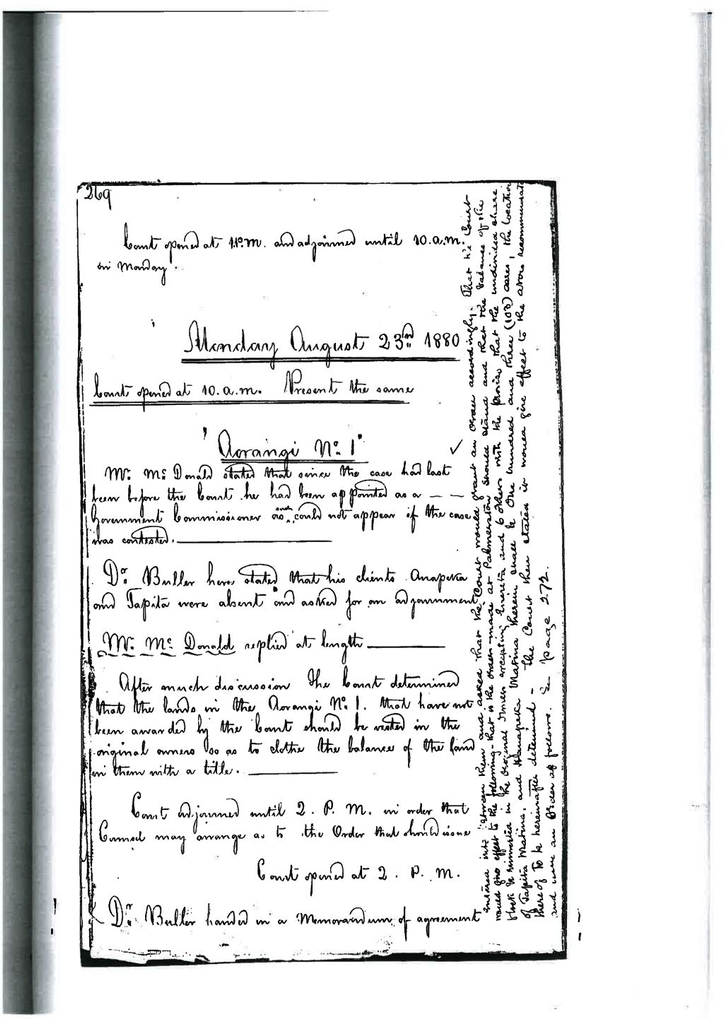 269
Court opened at 11 P.M. and adjourned until 10.a.m.
on Monday.
Monday August 23rd 1880
Court opened at 10.a.m. Present the same
"Aorangi No. 1"
Mr. McDonald stated that since the case had last
been before the Court he had been appointed as a — —
Government Commissioner and could not appear if the case
was contested.
Dr. Buller here stated that his clients
and Tapita were absent and asked for an adjournment
Mr. McDonald replied at length
After much discussion the Court determined
that the lands in the Aorangi No. 1. that have not
been awarded by the Court should be vested in the
original owners so as to clothe the balance of the land
in them with a title.
Court adjourned until 2. P.M. in order that
Counsel may arrange as to the Order that should issue
Court opened at 2. P.M.
Dr. Buller handed in a Memorandum of agreement
entered into between them and asked that the Court would grant an Order accordingly. That the Court
would give effect to the following that is the orders made at Palmerston should stand and that the balance of the
block be in the original and 6 others with the proviso that the undivided share
of Tapita Matina, and Matina therein shall be One hundred and three (103) acres, the location
thereof to be hereafter determined — The Court then stated it would give effect to the above
and made an Order as follows. See page 272.